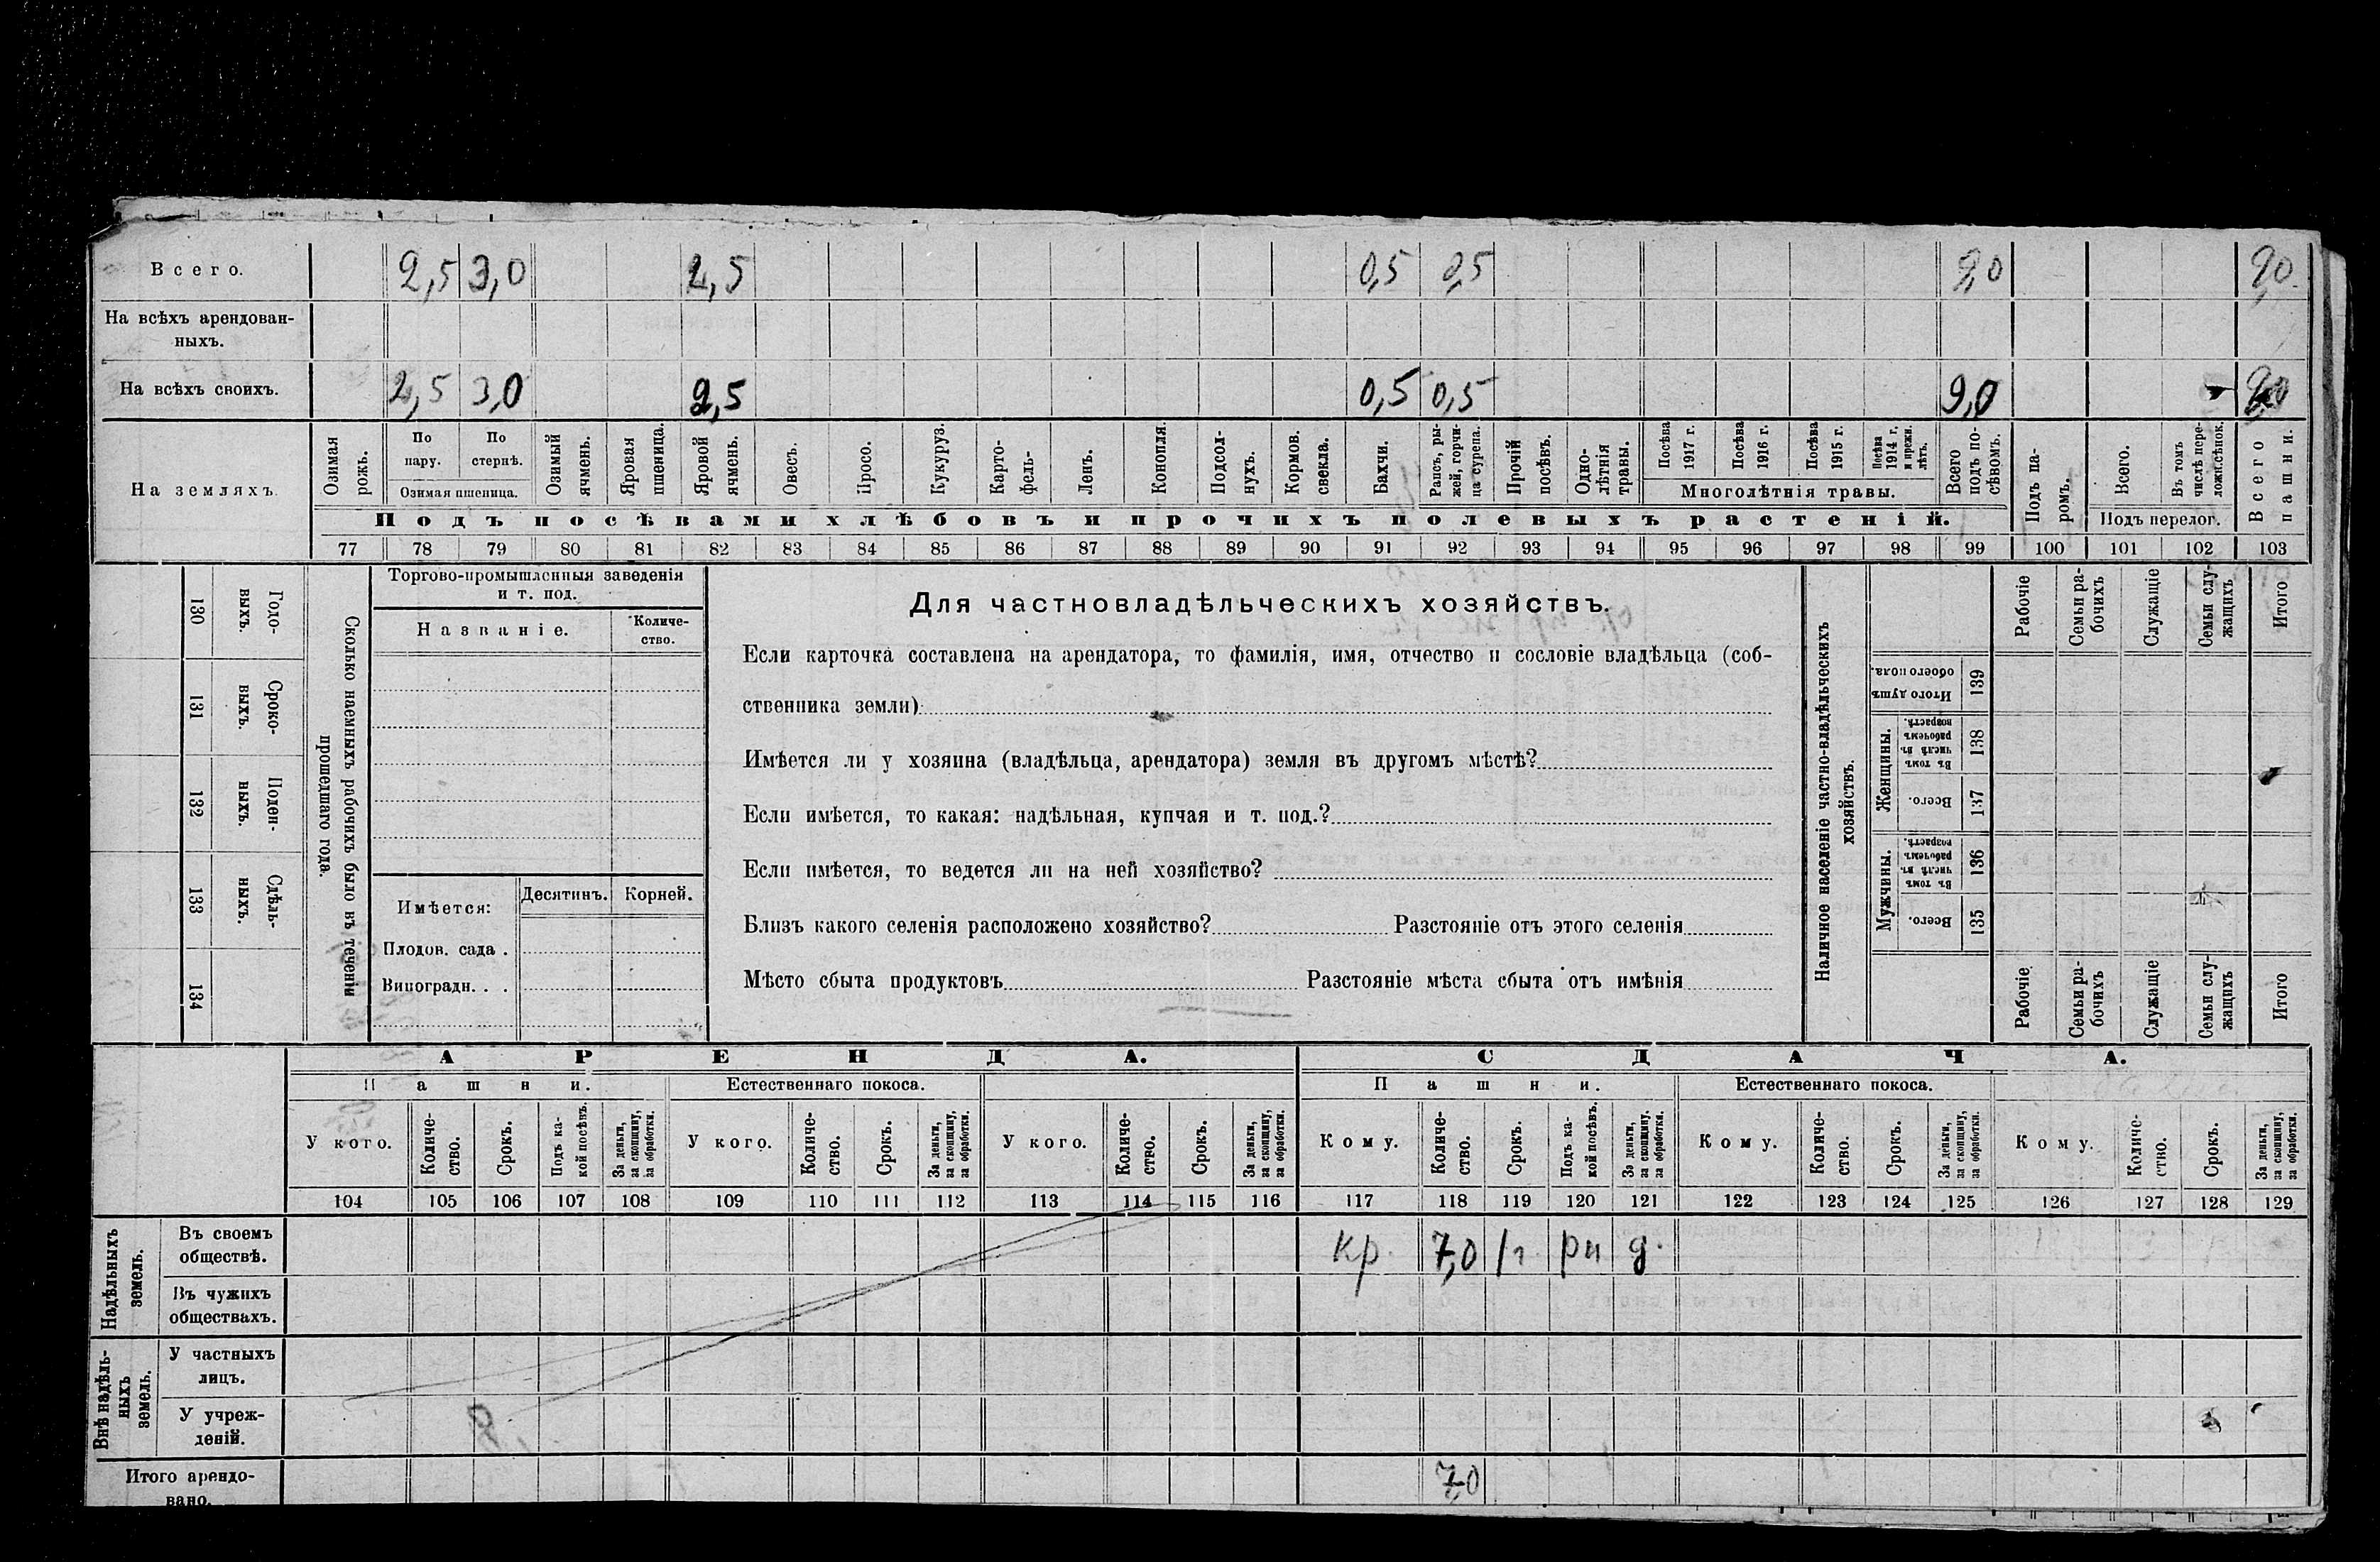 Всего. 2,5 3,0 2,5 0,5 0,5 9,0 9,0
На всѣхъ арендован-
ныхъ.
На всѣхъ своихъ. 2,5 3,0 2,5 0,5 0,5 9,0 9,0
На земляхъ.
Озимая
рожь.
По
пару.
По
стернѣ.
Озимая пшеница.
Озимый
ячмень.
Яровая
пшеница.
Яровой
ячмень.
Овесъ.
Просо.
Кукуруз.
Карто-
фель-
Ленъ.
Конопля.
Подсол-
нухъ.
Кормов.
свекла.
Бахчи.
Рапсъ, ры-
жей, горчи-
ца сурепа.
Прочій
посѣвъ.
Одно-
лѣтнія
травы.
Посѣва
1917 г.
Посѣва
1916 г.
Посѣва
1915 г.
Посѣва
1914 г.
и прежн.
лѣтъ.
Многолѣтнія травы.
Всего
подъ по-
сѣвомъ.
Подъ па-
ромъ.
Всего.
Въ томъ
числѣ пере-
ложн.сѣнок.
Подъ перелог.
Всего
пашни.
Подъ посѣвами хлѣбовъ и прочихъ полевыхъ растеній.
77 78 79 80 81 82 83 84 85 86 87 88 89 90 91 92 93 94 95 96 97 98 99 100 101 102 103
130
Годо-
выхъ.
131
Сроко-
выхъ.
132
Поден-
ныхъ.
133
Сдѣль-
ныхъ.
134
Сколько наемныхъ рабочихъ было въ теченіи
прошедшаго года.
Торгово-промышленныя заведенія
и т. под.
Названіе.
Количе-
ство.
Имѣется:
Десятинъ. Корней.
Плодов. сада .
Виноградн. . .
Для частновладѣльческихъ хозяйствъ.
Если карточка составлена на арендатора, то фамилія, имя, отчество и сословіе владѣльца (соб-
ственника земли)
Имѣется ли у хозяина (владѣльца, арендатора) земля въ другомъ мѣстѣ?
Если имѣется, то какая: надѣльная, купчая и т. под.?
Если имѣется, то ведется ли на ней хозяйство?
Близъ какого селенія расположено хозяйство? Разстояніе отъ этого селенія
Мѣсто сбыта продуктовъ Разстояніе мѣста сбыта отъ имѣнія
Наличное населеніе частно-владѣльческихъ
хозяйствъ.
Рабочіе
Семьи ра-
бочихъ
Служащіе
Семьи слу-
жащихъ
Итого
Итого душъ
обоего пола.
139
Женщины.
Въ томъ
числѣ въ
рабочемъ
возрастѣ.
138
Всего.
137
Мужчины.
Въ томъ
числѣ въ
рабочемъ
возрастѣ.
136
Всего.
135
Рабочіе
Семьи ра-
бочихъ
Служащіе
Семьи слу-
жащихъ
Итого
АРЕНДА. СДАЧА.
Пашни. Естественнаго покоса. Пашни. Естественнаго покоса.
У кого.
Количе-
ство.
Срокъ.
Подъ ка-
кой посѣвъ.
За деньги,
за скопщину,
за обработки.
У кого.
Количе-
ство.
Срокъ.
За деньги,
за скопщину,
за обработки.
У кого.
Количе-
ство.
Срокъ.
За деньги,
за скопщину,
за обработки.
Кому.
Количе-
ство.
Срокъ.
Подъ ка-
кой посѣвъ.
За деньги,
за скопщину.
за обработки.
Кому.
Количе-
ство.
Срокъ.
За деньги,
за скопщину,
за обработки.
Кому.
Количе-
ство.
Срокъ.
За деньги,
за скопщину,
за обработки.
104 105 106 107 108 109 110 111 112 113 114 115 116 117 118 119 120 121 122 123 124 125 126 127 128 129
Надѣльныхъ
земель.
Въ своемъ
обществѣ.
кр. 7,0 1г. рп д.
Въ чужихъ
обществахъ.
Внѣ надѣль-
ныхъ
земель.
У частныхъ
лицъ.
У учреж-
деній.
Итого арендо-
вано.
7,0